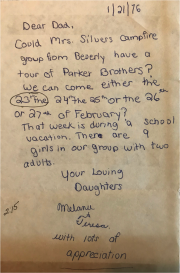 1/21/76
Dear Dad,
Could Mrs. Silvers Campfire
group from Beverly have a
tour of Parker Brothers?
We can come either the
23rd the 24th the 25th or the 26th
or 27th of February?
That week is during a school
vacation. There are 9
girls in our group with two
adults.
Your Loving
Daughters
Melanie
&
Teresa
215
with lots of
appreciation